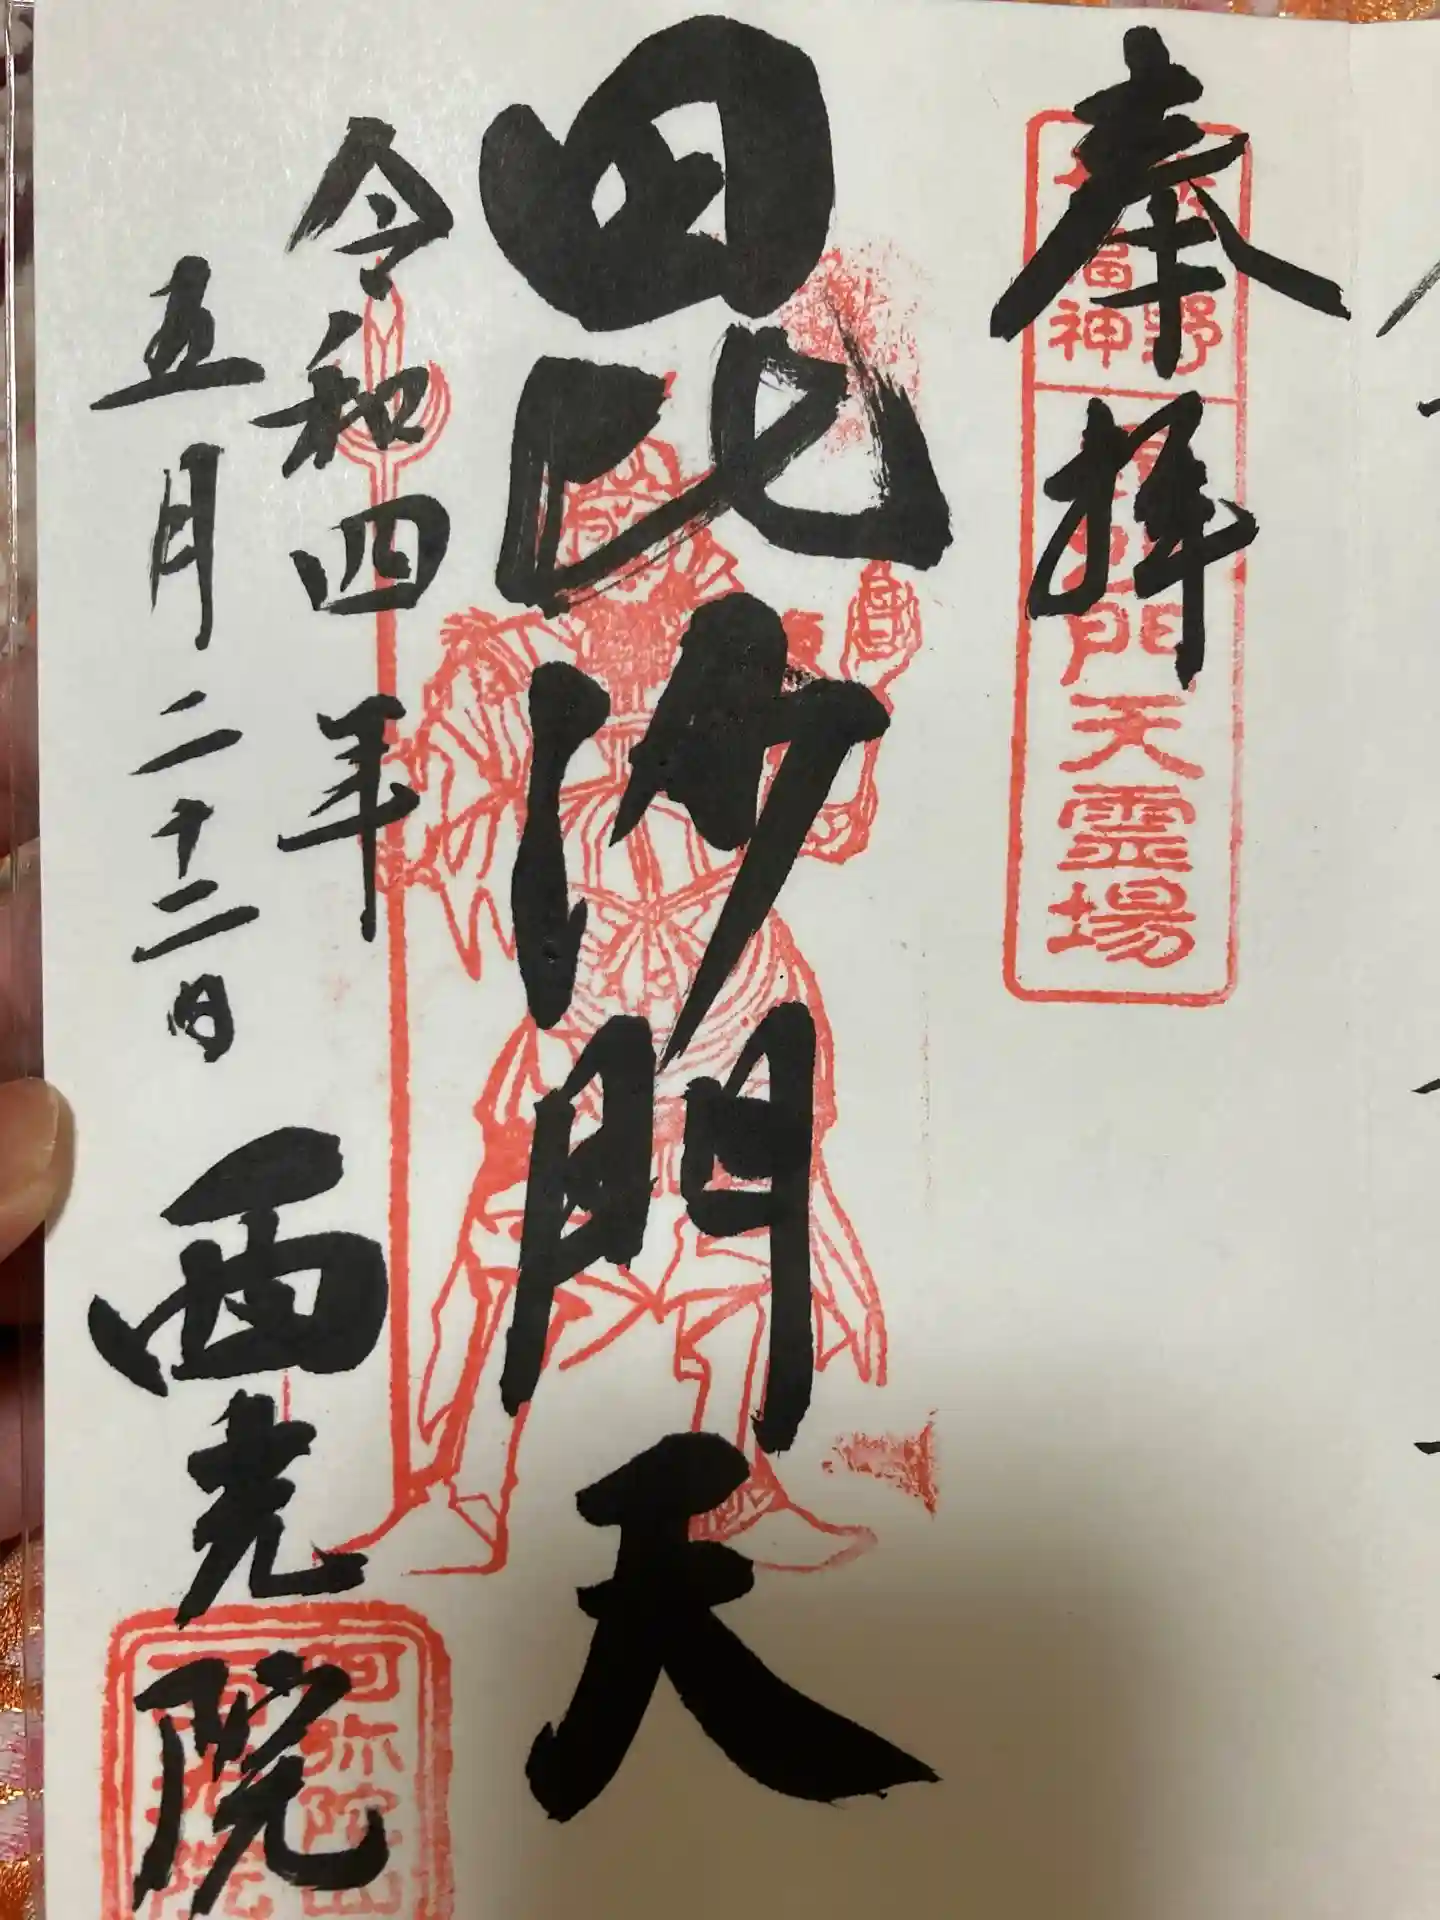 奉拝
福神
野
門天霊場
毘沙門天
令和四年
五月二十二日
西光院
阿弥陀山
西光院